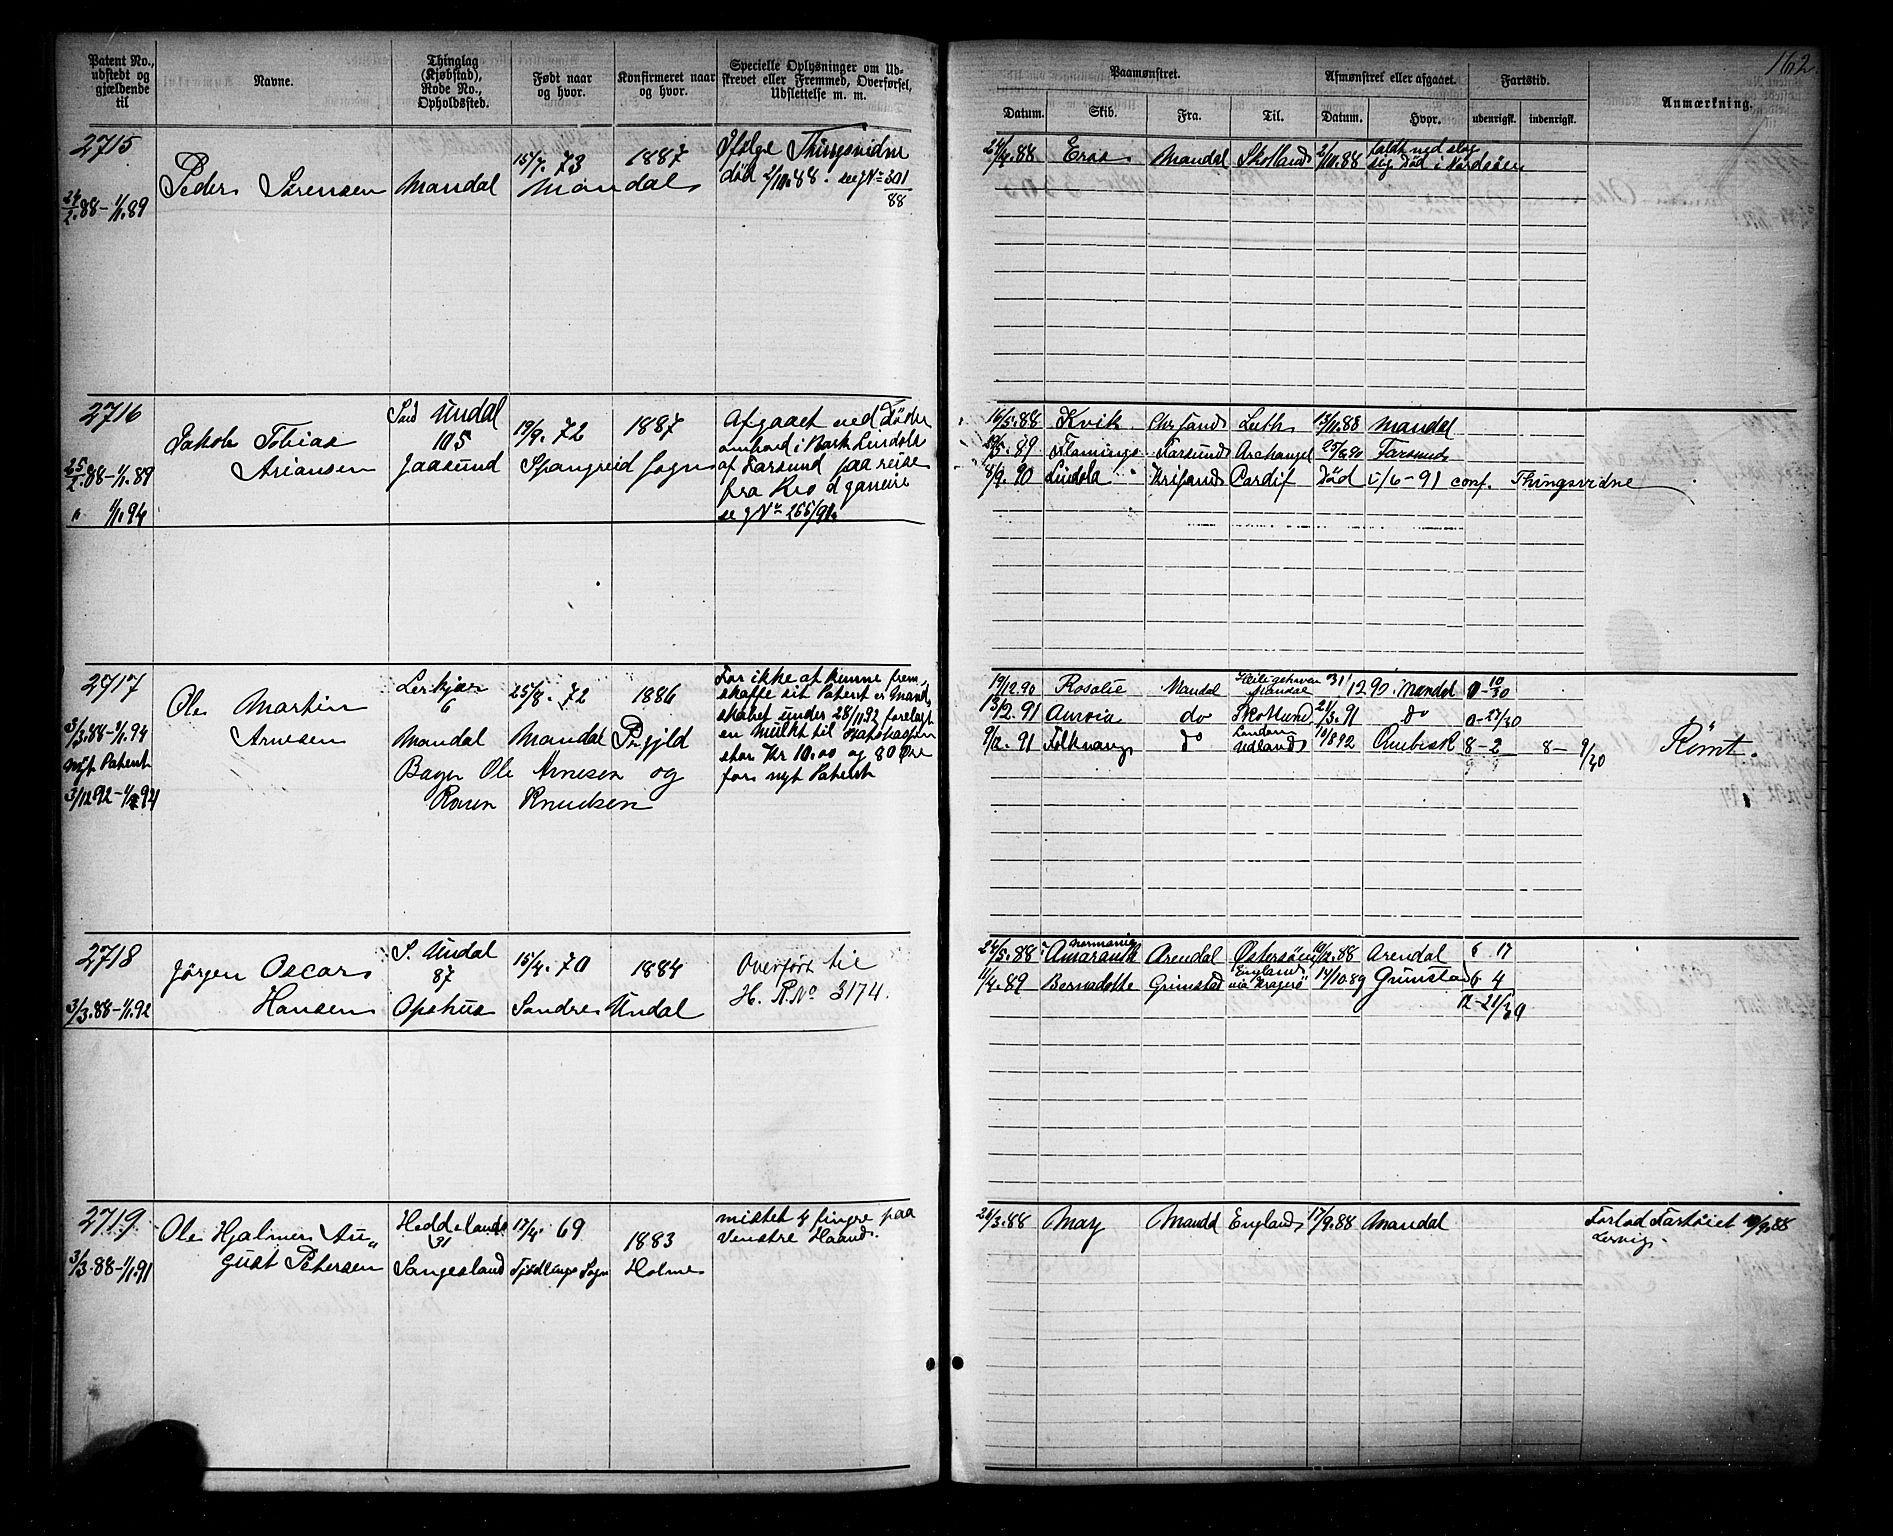 162.
Patent No., udstedt og gjældende til
Navne.
Thinglag (Kjøbstad), Rode No., Opholdssted.
Født naar og hvor.
Konfirmeret naar og hvor.
Specielle Oplysninger om Udskrevet eller Fremmed, Overførsel, Udslettelse m. m.
Paamønstret.
Afmønstret eller afgaaet.
Fartstid.
Anmærkning.
Datum.
Skib.
Fra.
Til.
Datum.
Hvor.
udenrigsk.
indenrigsk.
2715
Peder Sørensen
Mandal
15/7. 73
1887
Mandal
Ifølge Thingsvidne
død 2/10.88. se gNo 301
88
24/2.88-1/1.89
88
Mandal
Skotland
2/10.88
faldt ned slog
sig død i Nordsøen
2716
Jakob Tobias
Ariansen
Sød Undal
105
Jaasund
19/9. 72
1887
Spangreid Sogn
Afgaaet ved Døden
ombord i Bark Lindola
af Farsund paa reise
fra Rio d ganeire
se gNo 266/91.
25/2.88-1/1.89
" 1/1.94
16/5.88 Kvik Chrsand Leith 13/11.88 Mandal
89 Flamingo Farsund Archangel 25/8.90 Farsund
8/9.90 Lindola Krisand Cardif Død 1/6-91 conf. Thingsvidne
2717
Ole Martin
Arnesen
Lerkjær
6
Mandal
25/8. 72
1886
Mandal Prgjld
Bager Ole Arnesen og
Karen Knudsen
For ikke at kunne frem-
skaffe sit Patent er Mand-
skabet under 28/11 92 forelagt
en Mulkt til Statskassen
stor Kr 10.00 og 80 Øre
for nyt Patent
3/3.88-1/1.94
Nyt Patent
3/12 92-1/1 94
19/12.90 Rosalie Mandal
Mandal
31/12 90. Mandal 0-10/30
13/2.91 Aurora do Skotland 21/3.91 do 0-27/30
91 Folkvang do
London
Udland
10/8 92 Quebeck 8-2 8- 9/30 Rømt.
2718
Jørgen Oscar
Hansen
S. Undal
87
Opshus
15/4. 70
1884
Søndre Undal
Overført til
H. R.No 3174.
3/3.88-1/1.92
24/5.88
Amaranth Arendal Østersøen
88 Arendal 6 17
11/4.89 Bernadotte Grimstad
England
via Kragerø
14/10.89 Grimstad 6 4
12-21/30
2719.
Ole Hjalmer Au-
gust Petersen
Heddeland
31
Sangesland
17/4. 69
1883
Sogn
Holme
mistet 4 fingre paa
Venstre Haand.
3/3.88-1/1.91
21/3.88 May Mandal England 17/9.88 Mandal
Forlod Fartøiet 10/9.88
Lervig.